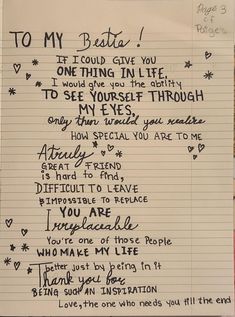 Page 3
of
Pages
TO MY Bestie !
IF I COULD GIVE YOU
ONE THING IN LIFE,
I would give you the ability
TO SEE YOURSELF THROUGH
MY EYES,
Only then would you realize
HOW SPECIAL YOU ARE TO ME
A truly
GREAT FRIEND
is hard to find,
DIFFICULT TO LEAVE
& IMPOSSIBLE TO REPLACE
YOU ARE
Irreplaceable
You're one of those People
WHO MAKE MY LIFE
better just by being in it
Thank you for
BEING SUCH AN INSPIRATION
Love, the one who needs you till the end